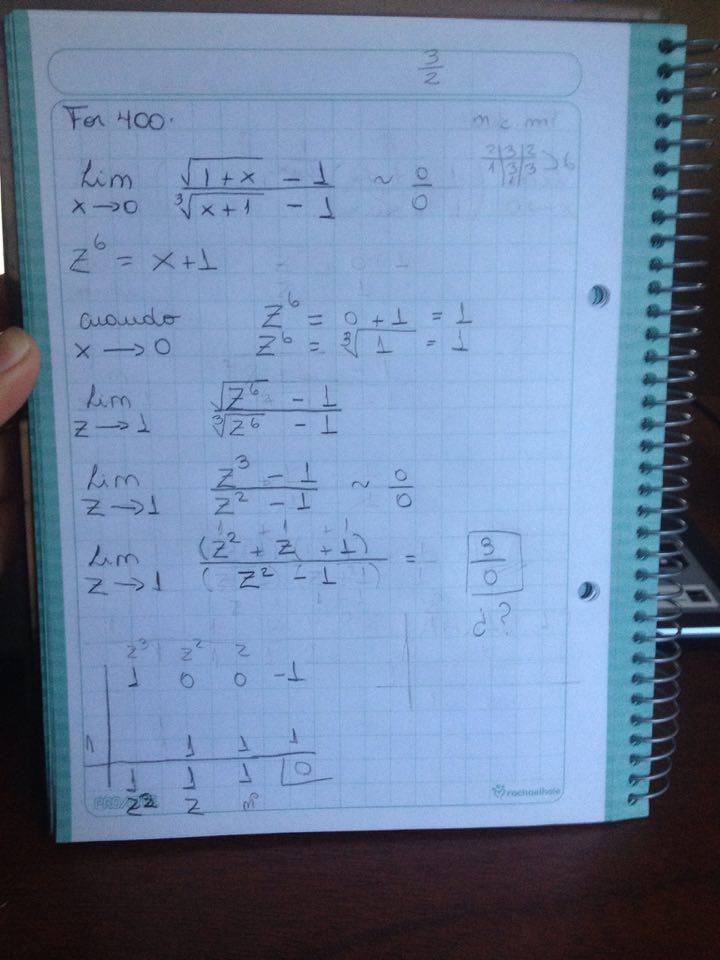 3/2
For 400.
m c m
2 | 3 | 2
1 | 3 | 3 > 6
1
Lim x→0 (√(1+x) - 1)/(∛(x+1) - 1) ~ 0/0
z⁶ = x+1
cuando x → 0
z⁶ = 0 + 1 = 1
z⁶ = ∛1 = 1
Lim z→1 (√z⁶ - 1)/(∛z⁶ - 1)
Lim z→1 (z³ - 1)/(z² - 1) ~ 0/0
Lim z→1 (z² + z + 1)/(z² - 1) = 3/0
¿?
z³ z² z
1 0 0 -1
1 1 1 1
1 1 1 0
z² z
rachaelhale